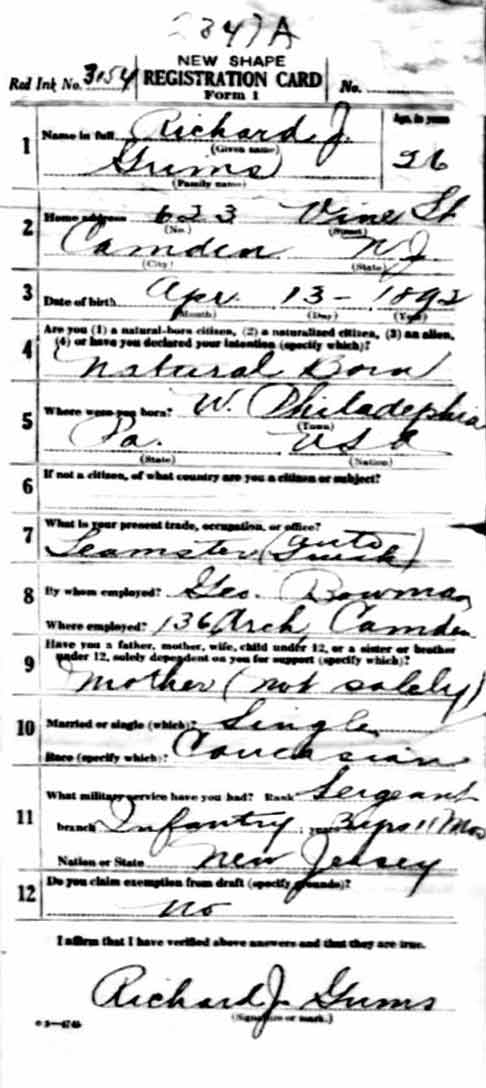 2347A
NEW SHAPE
Red Ink No. 3154 REGISTRATION CARD No.
Form 1
1 Name in full Richard J. Age, in years
(Given name)
Grims 26
(Family name)
2 Home address 633 Vine St
(No.) (Street)
Camden N J.
(City) (State)
3 Date of birth Apr. 13 - 1892
(Month) (Day) (Year)
Are you (1) a natural-born citizen, (2) a naturalized citizen, (3) an alien,
4 (4) or have you declared your intention (specify which)?
Natural Born
5 Where were you born? W. Philadephia
(Town)
Pa. USA
(State) (Nation)
6 If not a citizen, of what country are you a citizen or subject?
7 What is your present trade, occupation, or office?
Teamster (auto truck)
8 By whom employed? Geo. Bowman
Where employed? 136 Arch, Camden
Have you a father, mother, wife, child under 12, or a sister or brother
9 under 12, solely dependent on you for support (specify which)?
Mother (not solely)
10 Married or single (which)? Single
Race (specify which)? Caucasian
What military service have you had? Rank Sergeant
11 branch Infantry ; years 3 yrs 11 Mos
Nation or State New Jersey
12 Do you claim exemption from draft (specify grounds)?
no
I affirm that I have verified above answers and that they are true.
Richard J. Grims
(Signature or mark.)